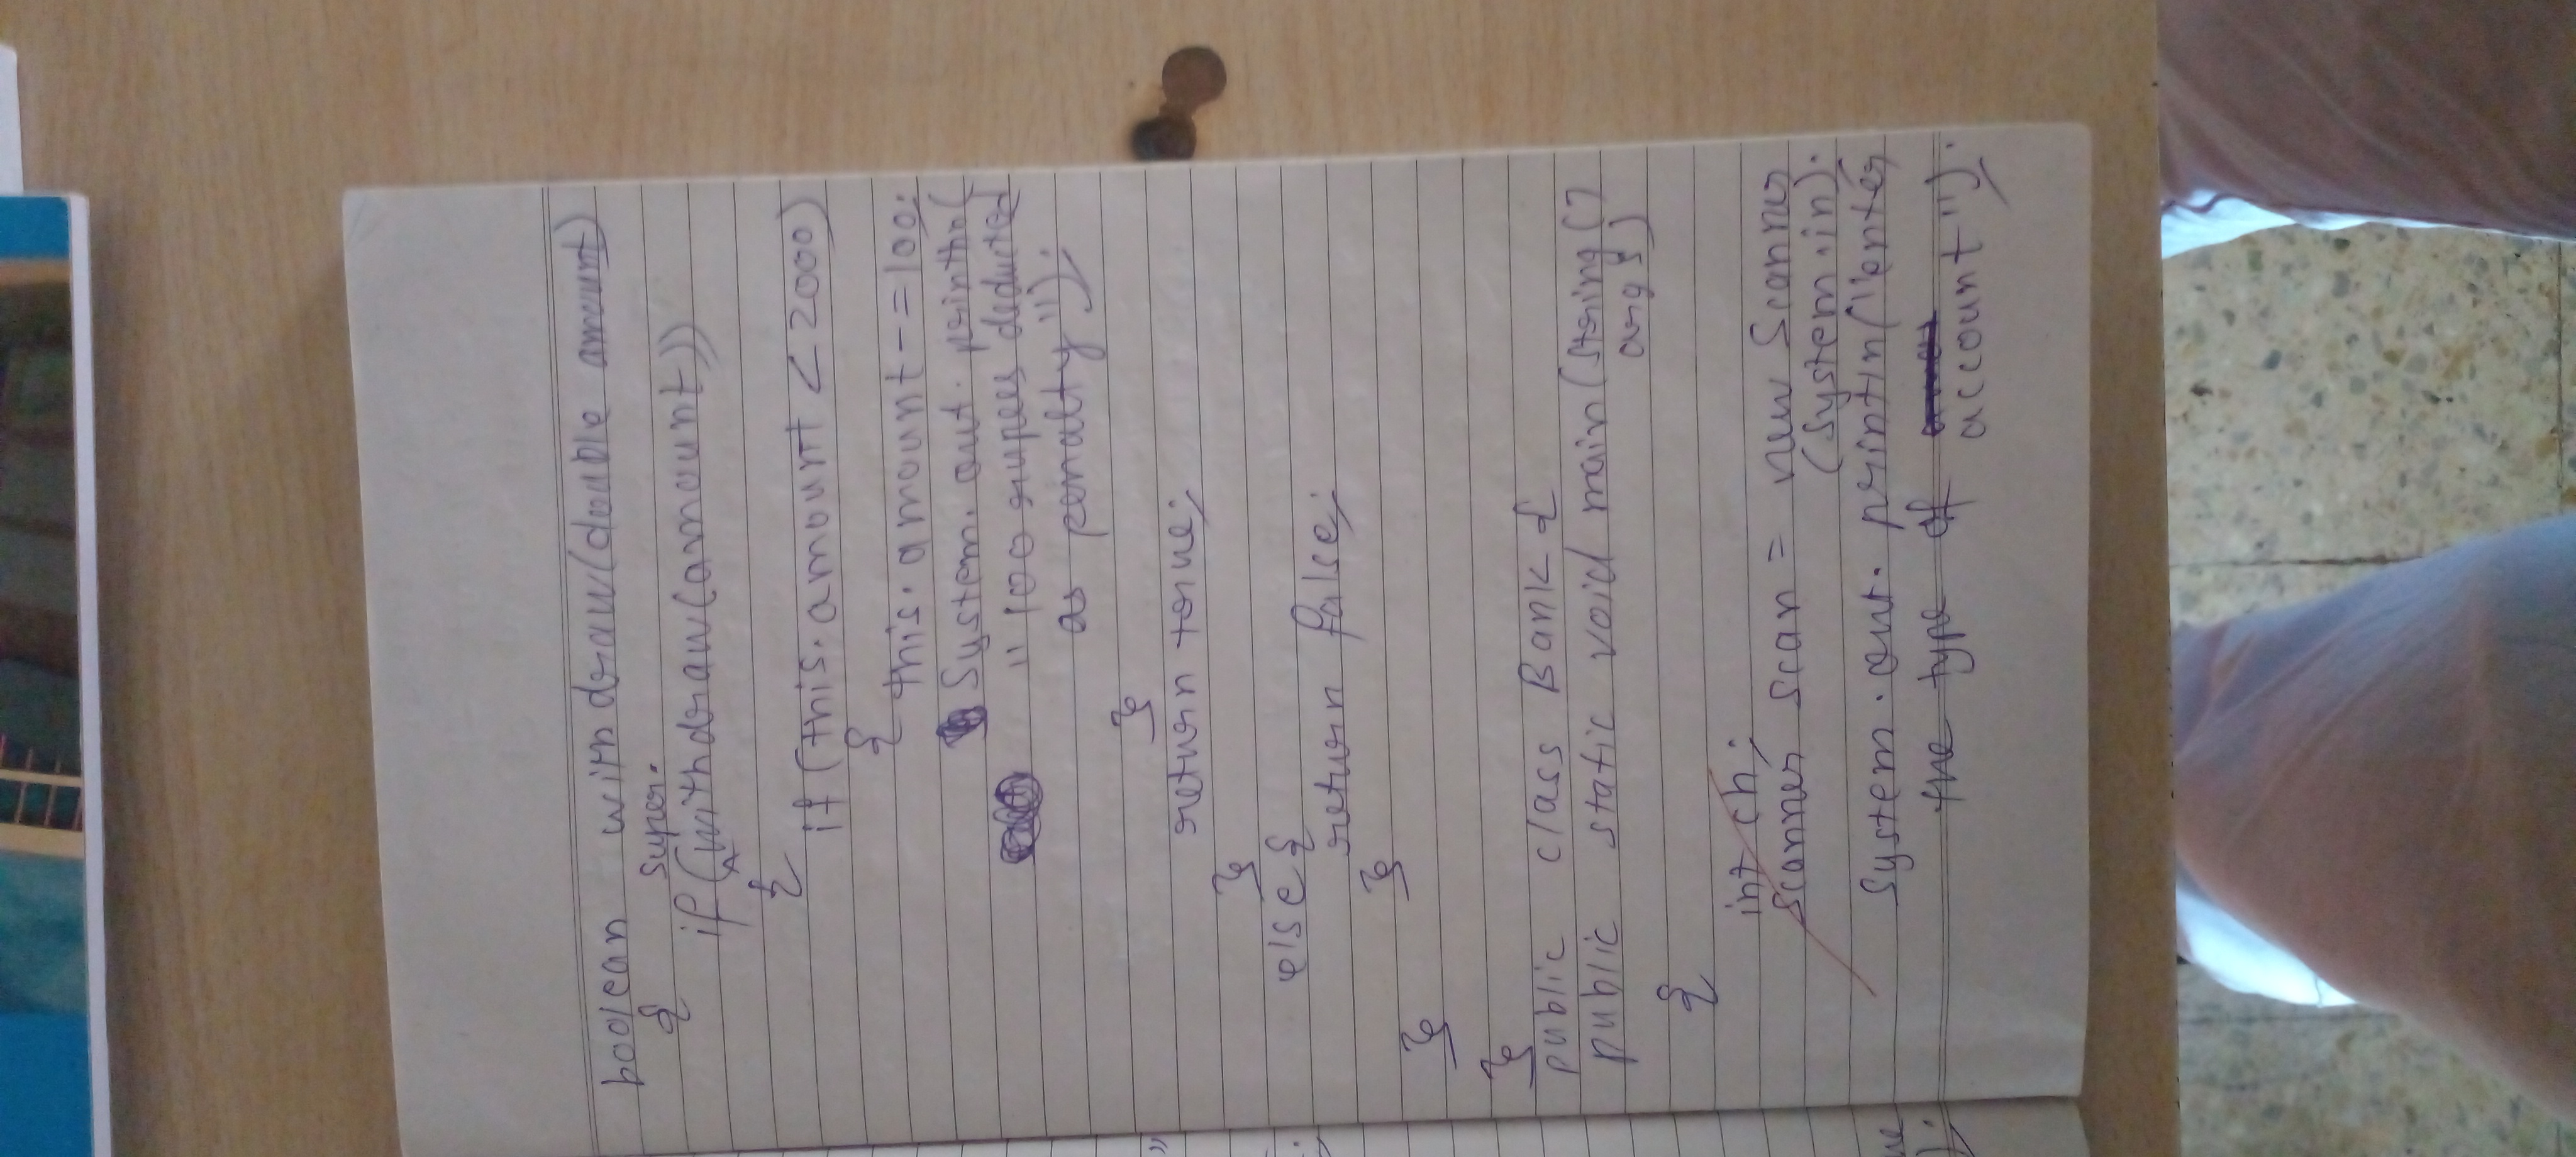 boolean withdraw(double amount)
{
super.
if(withdraw(amount))
{
if(this.amount < 2000)
{
this.amount -= 100;
System.out.println(
"100 rupees deducted
as penalty");
}
return true;
}
else{
return false;
}
}
}
public class Bank {
public static void main(String[]
args)
{
int ch;
Scanner scan = new Scanner
(System.in);
System.out.println("enter
the type of
account");